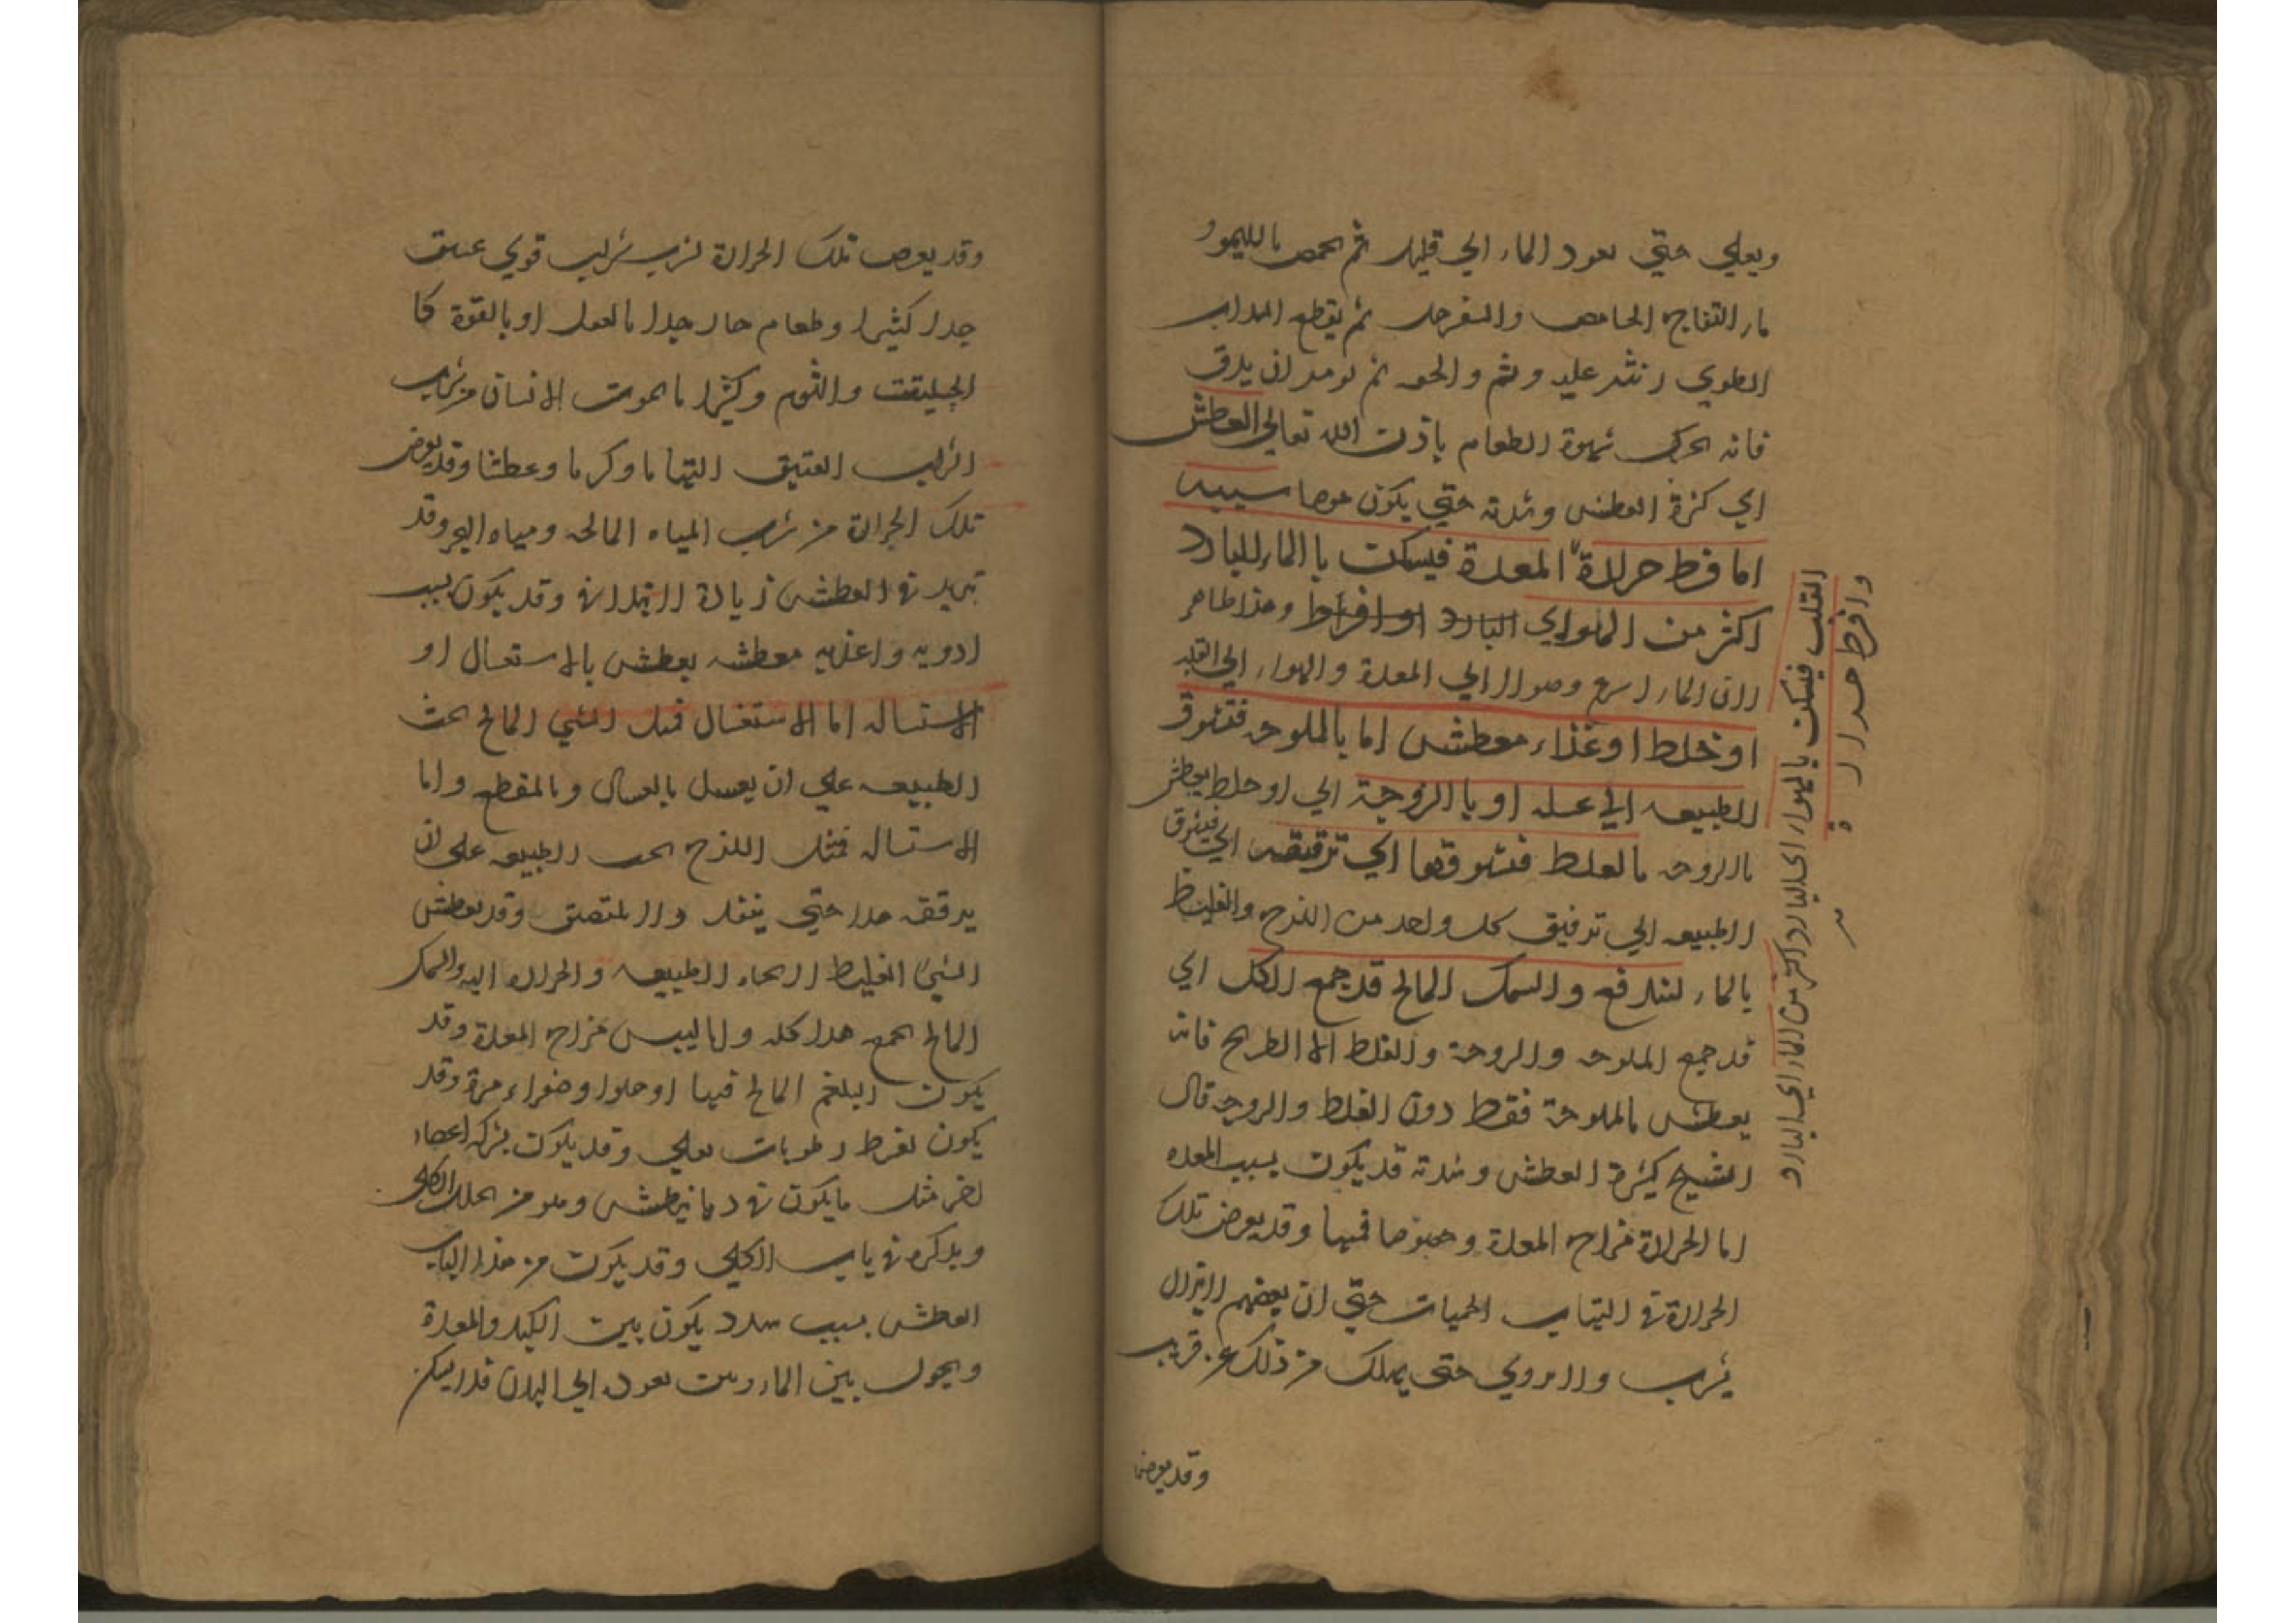 ويغلي حتي يعود الماء الي قليل ثم يحمض بالليمو و
ماء التفاح الحامض والسفرجل ثم يقطع السداب
الطري وينثر عليه
فانه يحرك شهوة الطعام باذن الله تعالي العطش
اي كثرة العطش وشدته حتي يكون مرضا سببه
اما فرط حرارة المعدة فيسكن بالماء البارد
اكثر من الهواء اي البارد او افراط وهذا ظاهر
لان الماء اسرع وصولا الي المعدة والهواء الي القلب
او خلط او غذاء معطش اما بالملوحة فتشوق
الطبيعه الي غسله او بالزوجة اي او خلط يعطش
بالزوجه بالغلط فتشوقها اي ترققه اي فيشوق
الطبيعه الي ترقيق كل واحد من اللزج والغليظ
بالماء ليندفع والسمك المالح قد جمع الكل اي
قد جمع الملوحه والزوجة والغلظ الا الطريح فانه
يعطش بالملوحة فقط دون الغلظ والزوجه قال
الشيخ كثرة العطش وشدته قد يكون بسبب المعده
اما لحرارة مزاج المعدة وخصوصا فمها وقد يعرض تلك
الحرارة في التهاب الحميات حتي ان بعضهم لا يزال
يشرب ولا يروي حتي يهلك من ذلك عن قريب
وقد يعرض
وافرط حرارة
القلب فيسكن بالهواء اي البارد اكثر من الماء اي البارد
وقد يعرض تلك الحرارة لشرب شراب قوي عتيق
جدا كثيرا وطعام حار جدا بالفعل او بالقوة كا
الحلتيت والثوم وكثيرا ما يموت الانسان من شرب
الشراب العتيق التهابا وكربا وعطشا وقد يعرض
تلك الحرارة من شرب المياه المالحه ومياه البحر وقد
تزيد في العطش زيادة لا تتدارك وقد يكون بسبب
ادويه واغذيه معطشه يعطش بالاستغسال او
الاستسالة اما الاستغسال فمثل الشي المالح يحث
الطبيعه علي ان يغسل بالغسال وبالمقطع واما
الاستساله فمثل اللزج يحث الطبيعه علي ان
يرققه جدا حتي ينفذ ولا يلتصق وقد يعطش
الشي الغليظ لاتجاه الطبيعه والحرارة اليه والسمك
المالح يجمع هذا كله واما ليبس مزاج المعدة وقد
يكون البلغم المالح فيها او حلوا وصفراء مرة وقد
يكون لفرط رطوبات تغلي وقد يكون بشركة اعضاء
اخر مثل ما يكون في ديابيطش وهو من علل الكلي
ونذكره في باب الكلي وقد يكون من هذا الباب
العطش بسبب سدد يكون بين الكبد والمعدة
ويحول بين الماء وبين نفوذه الي البدن فلا يسكن